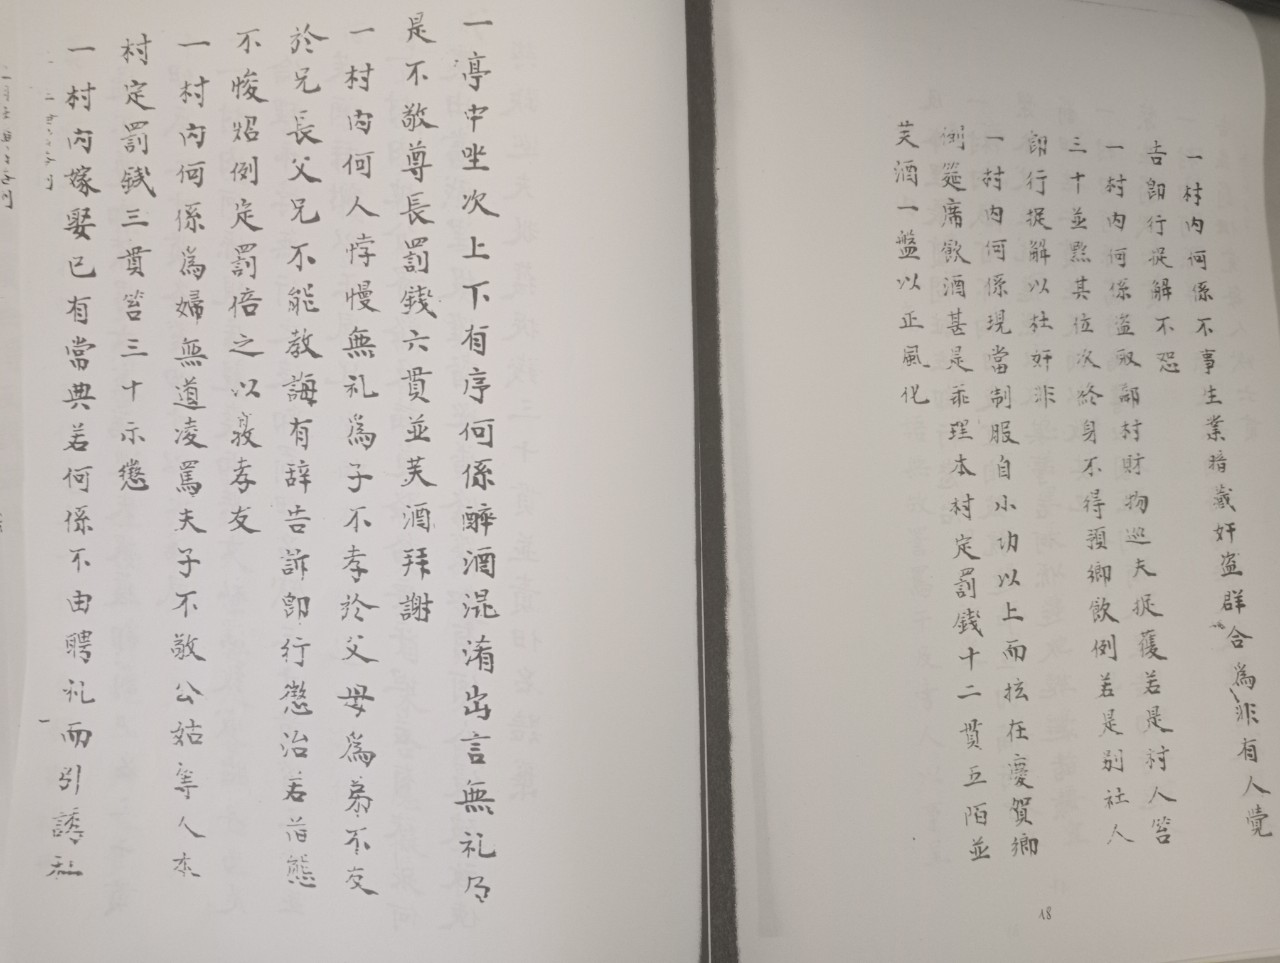 一村内何係不事生業暗藏奸盗群合爲非有人覺
告卽行捉解不恕
一村内何係盗取部村財物巡夫捉獲若是村人笞
三十並點其位次終身不得預鄉飲例若是别社人
卽行捉解以杜奸非
一村内何係現當制服自小功以上而抂在慶賀鄉
例筵席飲酒甚是乖理本村定罰錢十二貫五陌並
芙酒一盤以正風化
18
一亭中坐次上下有序何係醉酒混淆出言無礼乃
是不敬尊長罰錢六貫並芙酒拜謝
一村内何人悖慢無礼爲子不孝於父母爲弟不友
於兄長父兄不能教誨有辞告訴卽行懲治若舊態
不悛炤例定罰倍之以敦孝友
一村内何係爲婦無道凌罵夫子不敬公姑等人本
村定罰錢三貫笞三十示懲
一村内嫁娶已有常典若何係不由聘礼而引誘私